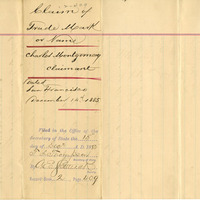 Claim of
Trade Mark
or Name
Charles Montgomery
claimant
Dated
San Francisco
December 12th 1885
Filed in the Office of the
Secretary of State the 15
day of Dec A.D. 1885
Secretary of State
By
Deputy
Record Book 2 Page 409